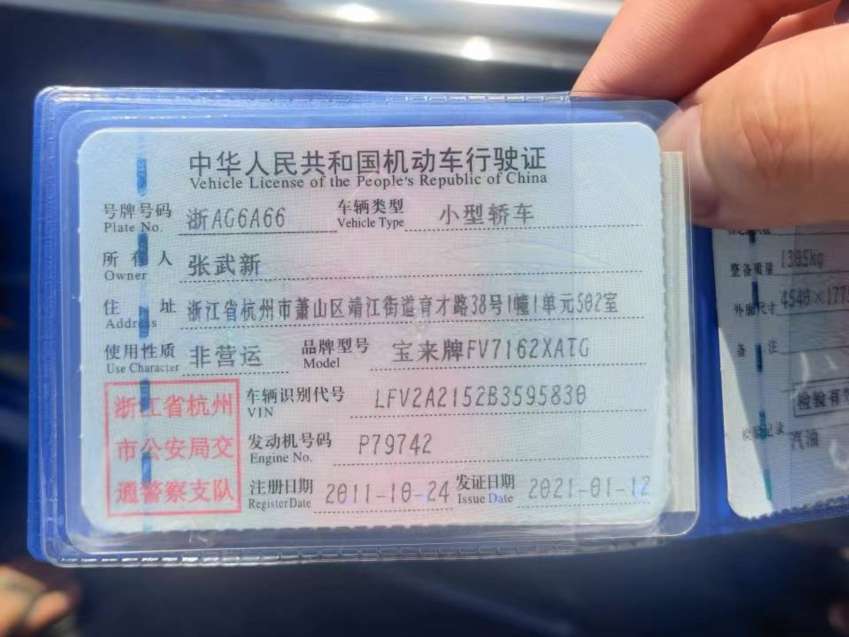 中华人民共和国机动车行驶证
Vehicle License of the People's Republic of China
号牌号码 浙AG6A66 车辆类型 小型轿车
Plate No. Vehicle Type
所有人 张武新
Owner
住址 浙江省杭州市萧山区靖江街道育才路38号1幢1单元502室
Address
使用性质 非营运 品牌型号 宝来牌FV7162XATG
Use Character Model
浙江省杭州
市公安局交
通警察支队
车辆识别代号 LFV2A2152B3595830
VIN
发动机号码 P79742
Engine No.
注册日期 2011-10-24 发证日期 2021-01-12
Register Date Issue Date
整备质量 1385kg
外廓尺寸 4540×177
备注
检验有
检验记录
汽油